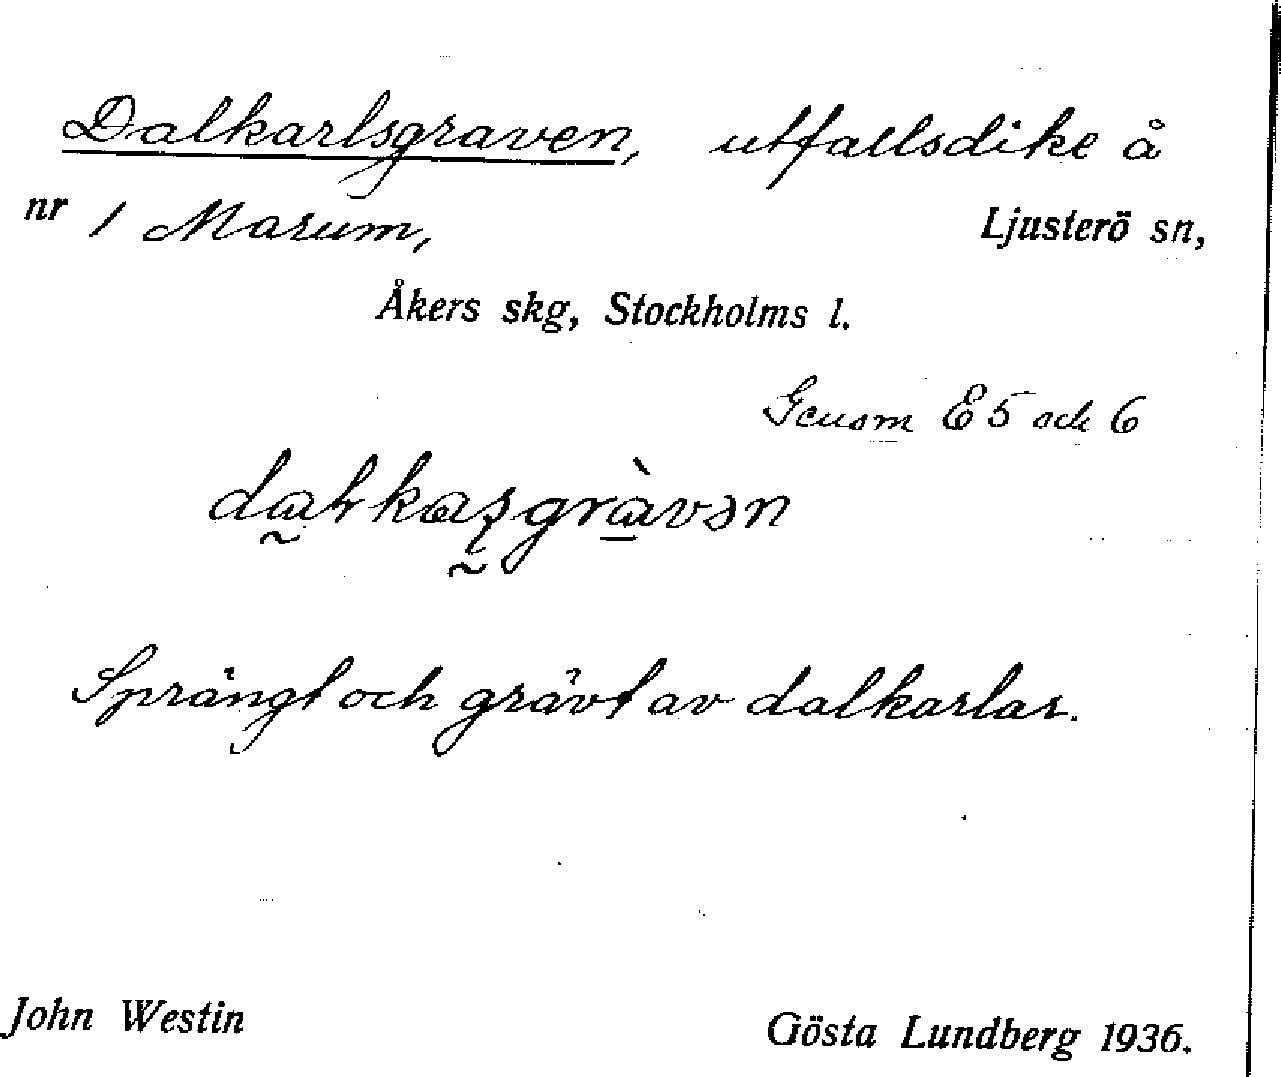 Dalkarlsgraven, utfallsdike å
nr 1 Marum, Ljusterö sn,
Åkers skg, Stockholms l.
Genom E5 och 6
Sprängt och grävt av dalkarlar.
John Westin Gösta Lundberg 1936.